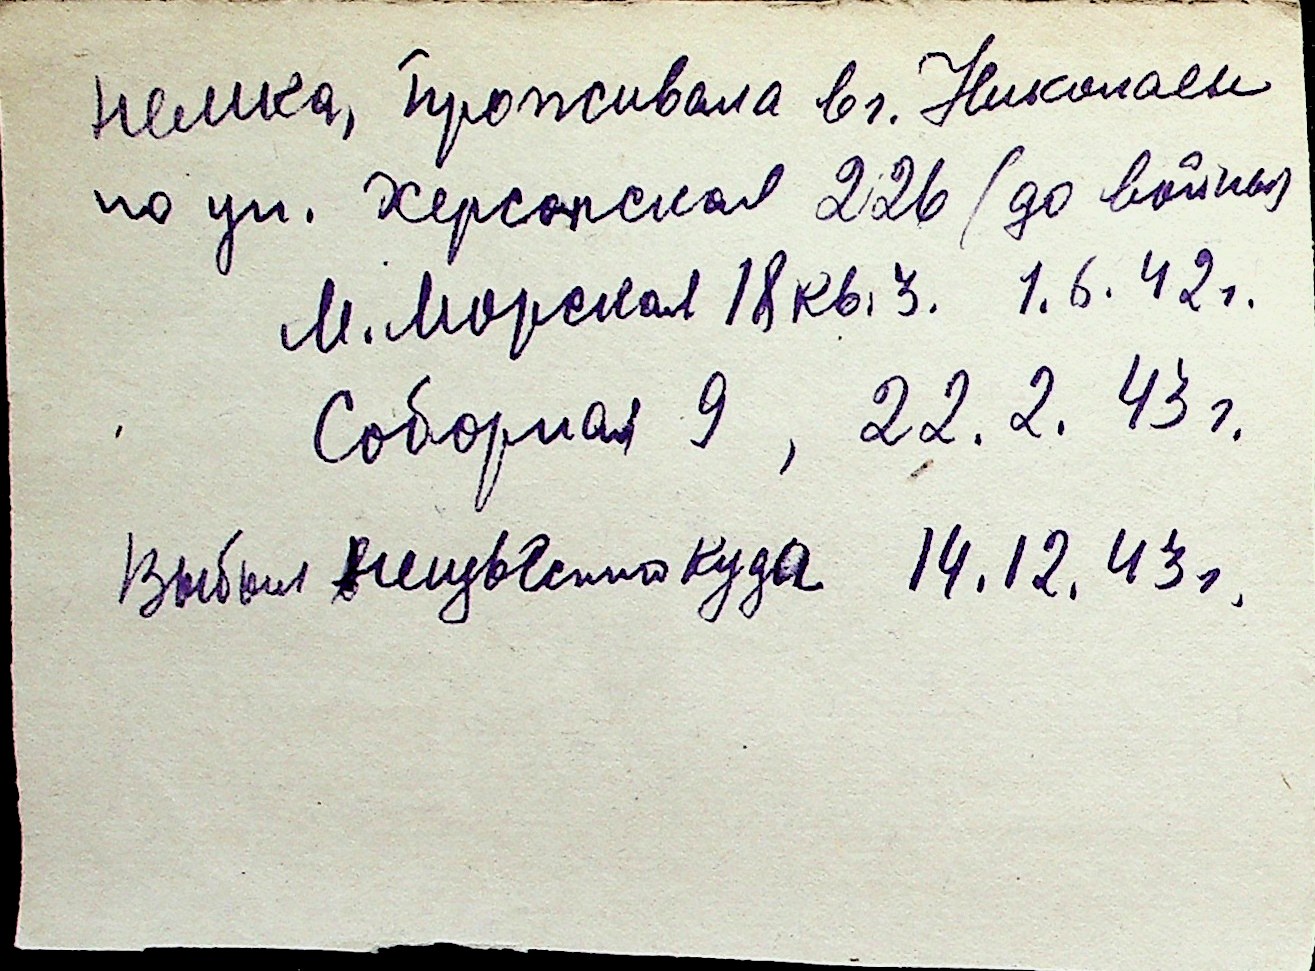 немка, проживала в г. Николаеве
по ул. Херсонская 226 (до войны)
М. Морская 18 кв. 3. 1.6.42 г.
Соборная 9, 22.2.43 г.
Выбыл неизвестно куда 14.12.43 г.